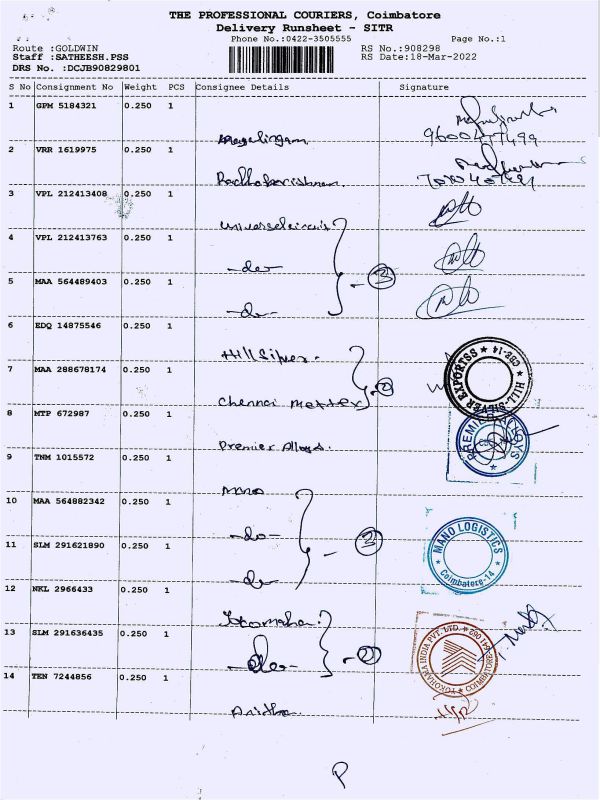 THE PROFESSIONAL COURIERS, Coimbatore
Delivery Runsheet - SITR
Phone No.:0422-3505555 Page No.:1
Route :GOLDWIN RS No.:908298
Staff :SATHEESH.PSS RS Date:18-Mar-2022
DRS No. :DCJB90829801
S No Consignment No Weight PCS Consignee Details Signature
1 GPM 5184321 0.250 1
2 VRR 1619975 0.250 1
Radhakrishnan
3 VPL 212413408 0.250 1
4 VPL 212413763 0.250 1
-do-
5 MAA 564489403 0.250 1 3
-do-
6 EDQ 14875546 0.250 1
Hill Silver.
7 MAA 288678174 0.250 1
HILL-SILVER EXPORTSS CBE-14
Chennai
8 MTP 672987 0.250 1
PREMIER ALLOYS
Premier Alloys.
9 TNM 1015572 0.250 1
Mano
10 MAA 564882342 0.250 1
-do-
11 SLM 291621890 0.250 1
MANO LOGISTICS Coimbatore-14
-do-
12 NKL 2966433 0.250 1
Yokomaha
13 SLM 291636435 0.250 1 2
YOKOHAMA INDIA PVT. LTD. COIMBATORE
-do-
14 TEN 7244856 0.250 1
P